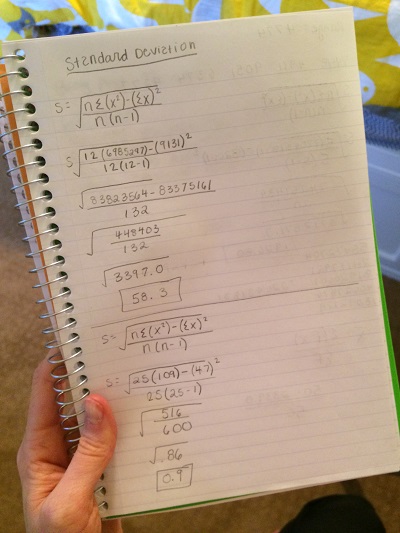 Standard Deviation
S= √(nΣ(x²)-(Σx)² / n(n-1))
S √(12(6985297)-(9131)² / 12(12-1))
√(83823564-83375161 / 132)
√(448403 / 132)
√3397.0
58.3
S= √(nΣ(x²)-(Σx)² / n(n-1))
S= √(25(109)-(47)² / 25(25-1))
√(516 / 600)
√.86
0.9